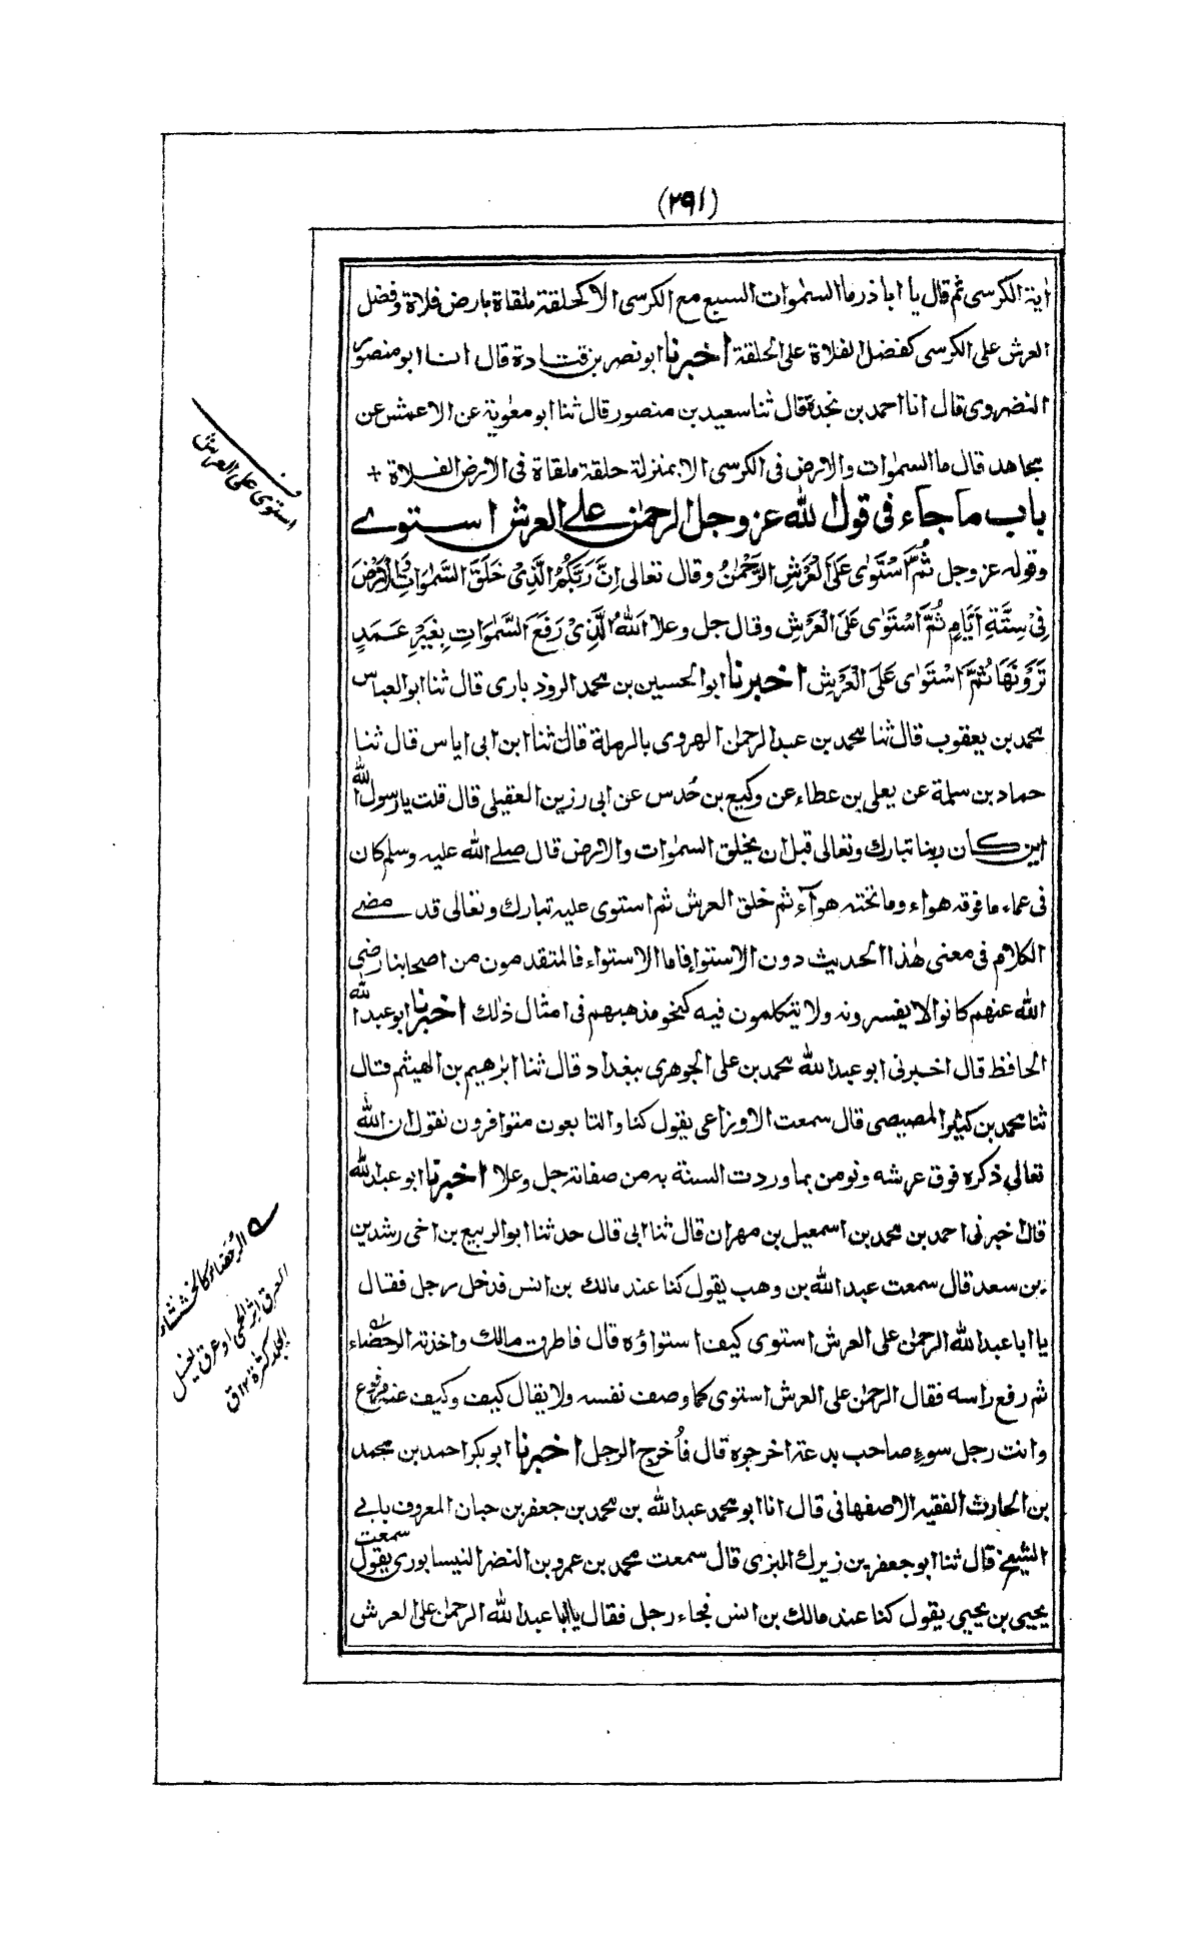 (٢٩١)
اٰية الكرسى ثم قال يا ابا ذر ما السمٰوات السبع مع الكرسى الا كحلقة ملقاة بارض فلاة وفضل
العرش على الكرسى كفضل الفلاة على الحلقة اخبرنا ابو نصر بن قتادة قال انا ابو منصور
النضروى قال انا احمد بن نجدة قال ثنا سعيد بن منصور قال ثنا ابو معٰوية عن الاعمش عن
مجاهد قال ما السمٰوات والارض فى الكرسى الا بمنزلة حلقة ملقاة فى الارض الفلاة +
باب ما جاء فى قول الله عز وجل الرحمٰن على العرش استوى
وقوله عز وجل ثُمَّ اسْتَوٰى عَلَى الْعَرْشِ الرَّحْمٰنُ وقال تعالى اِنَّ رَبَّكُمُ الَّذِىْ خَلَقَ السَّمٰوَاتِ وَالْاَرْضَ
فِىْ سِتَّةِ اَيَّامٍ ثُمَّ اسْتَوٰى عَلَى الْعَرْشِ وقال جل وعلا اَللهُ الَّذِىْ رَفَعَ السَّمٰوَاتِ بِغَيْرِ عَمَدٍ
تَرَوْنَهَا ثُمَّ اسْتَوٰى عَلَى الْعَرْشِ اخبرنا ابو الحسين بن محمد الروذبارى قال ثنا ابو العباس
محمد بن يعقوب قال ثنا محمد بن عبد الرحمٰن الهروى بالرملة قال ثنا ابن ابى اياس قال ثنا
حماد بن سلمة عن يعلى بن عطاء عن وكيع بن حُدس عن ابى رزين العقيلى قال قلت يا رسول الله
اين كان ربنا تبارك وتعالى قبل ان يخلق السمٰوات والارض قال صلى الله عليه وسلم كان
فى عماء ما فوقه هواء وما تحته هوآء ثم خلق العرش ثم استوى عليه تبارك وتعالى قد مضى
الكلام فى معنى هٰذا الحديث دون الاستواء فاما الاستواء فالمتقدمون من اصحابنا رضى
الله عنهم كانوا لا يفسرونه ولا يتكلمون فيه كنحو مذهبهم فى امثال ذلك اخبرنا ابو عبد الله
الحافظ قال اخبرنى ابو عبد الله محمد بن على الجوهرى ببغداد قال ثنا ابرٰهيم بن الهيثم قال
ثنا محمد بن كثير المصيصى قال سمعت الاوزاعى يقول كنا والتابعون متوافرون نقول ان الله
تعالى ذكره فوق عرشه ونومن بما وردت السنة به من صفاته جل وعلا اخبرنا ابو عبد الله
قال اخبرنى احمد بن محمد بن اسمعيل بن مهران قال ثنا ابى قال حدثنا ابو الربيع بن اخى رشدين
بن سعد قال سمعت عبد الله بن وهب يقول كنا عند مالك بن انس فدخل رجل فقال
يا ابا عبد الله الرحمٰن على العرش استوى كيف استواؤه قال فاطرق مالك واخذته الرحضاء
ثم رفع راسه فقال الرحمٰن على العرش استوى كما وصف نفسه ولا يقال كيف وكيف عنه مرفوع
وانت رجل سوءٍ صاحب بدعة اخرجوه قال فأُخرج الرجل اخبرنا ابو بكر احمد بن محمد
بن الحارث الفقيه الاصفهانى قال انا ابو محمد عبد الله بن محمد بن جعفر بن حبان المعروف بابى
الشيخ قال ثنا ابو جعفر بن زيرك البزى قال سمعت محمد بن عمرو بن النضر النيسابورى يقول سمعت
يحيى بن يحيى يقول كنا عند مالك بن انس فجاء رجل فقال يا ابا عبد الله الرحمٰن على العرش
استوى على العرش
الرُحَضاء كالخششاء
العرق اثر الحمى او عرق يغسل
الجلد كثرة ١٢ ق